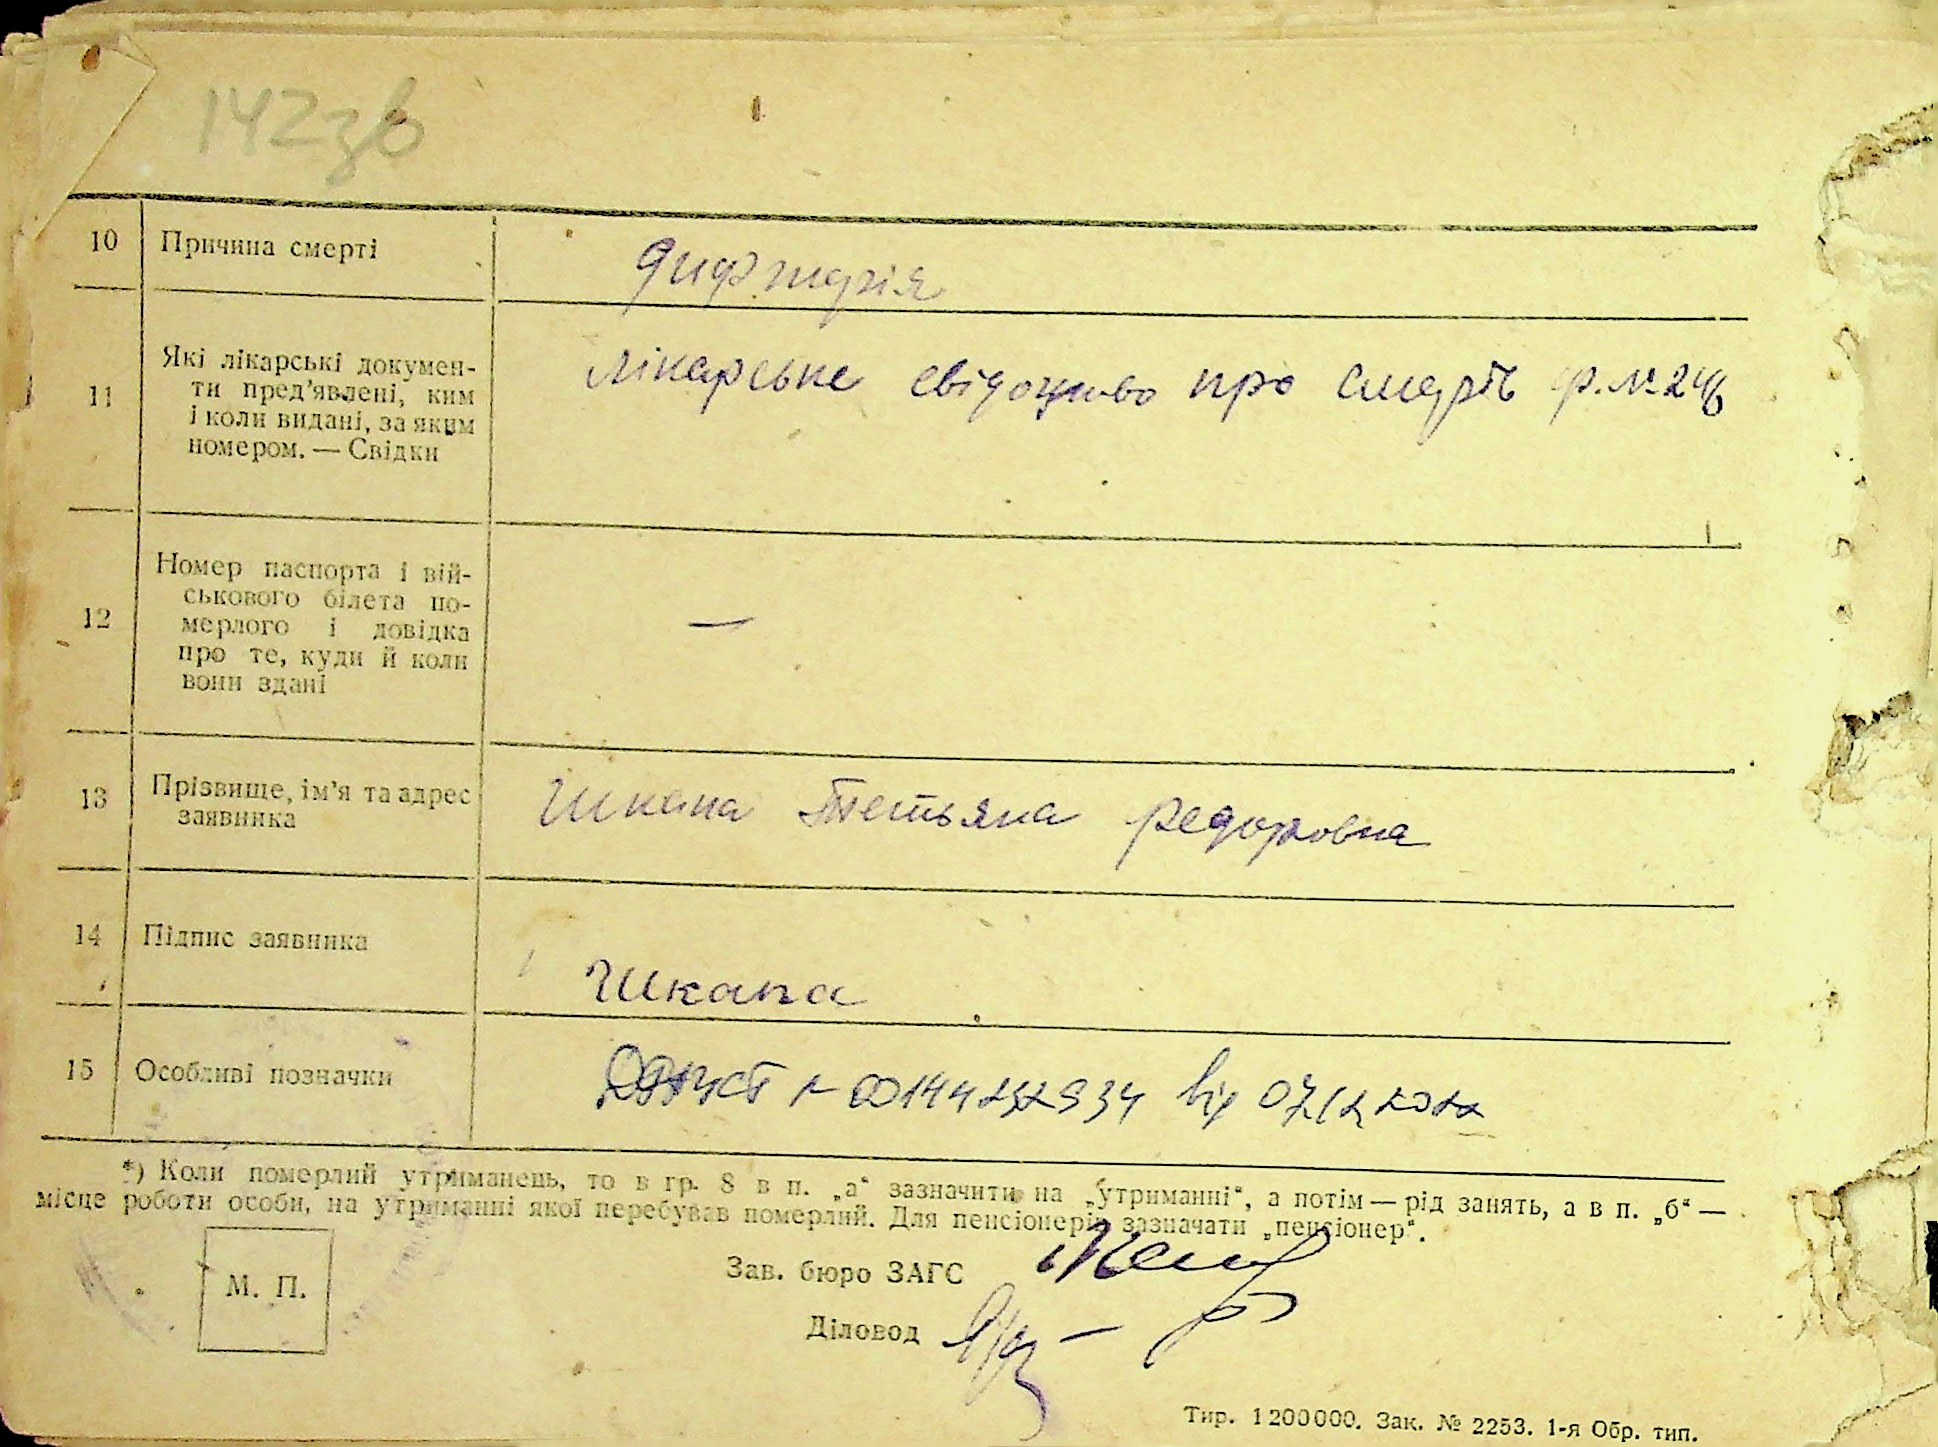 142зв
10 Причина смерті дифтерія
11 Які лікарські докумен-
ти пред'явлені, ким
і коли видані, за яким
номером. — Свідки
лікарське свідоцтво про смерть ф. № 24б
12 Номер паспорта і вій-
ськового білета по-
мерлого і довідка
про те, куди й коли
вони здані
—
13 Прізвище, ім'я та адрес
заявника
Шкапа Тетьяна Федоровна
14 Підпис заявника
Шкапа
15 Особливі позначки
від
*) Коли померлий утриманець, то в гр. 8 в п. „а" зазначити на „утриманні", а потім — рід занять, а в п. „б" —
місце роботи особи, на утриманні якої перебував померлий. Для пенсіонерів зазначати „пенсіонер".
М. П.
Зав. бюро ЗАГС
Діловод
Тир. 1200000. Зак. № 2253. 1-я Обр. тип.